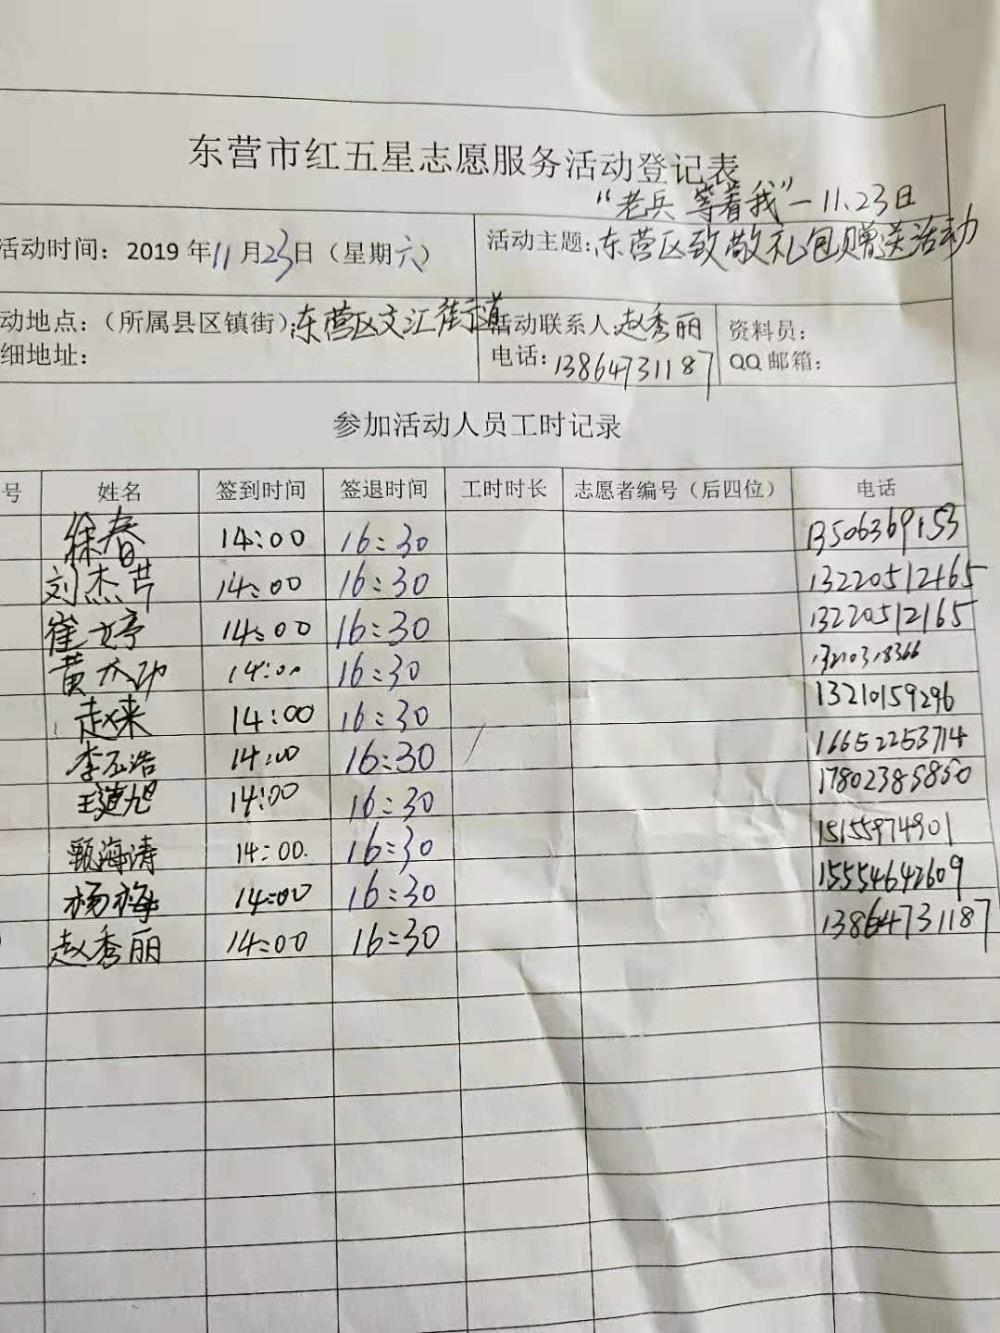 东营市红五星志愿服务活动登记表
“老兵 等着我”—11.23日
活动时间：2019年11月23日（星期六） 活动主题：东营区致敬礼包赠送活动
动地点：（所属县区镇街）：东营区文汇街道 活动联系人 赵秀丽 资料员：
细地址： 电话：13864731187 QQ邮箱：
参加活动人员工时记录
号 姓名 签到时间 签退时间 工时时长 志愿者编号（后四位） 电话
徐春 14:00 16:30 13506369153
刘杰芹 14:00 16:30 13220512465
崔婷 14:00 16:30 13220512165
黄 14:00 16:30
赵来 14:00 16:30 13210159296
李丕浩 14:00 16:30 16652253714
王建旭 14:00 16:30 17802385850
甄海涛 14:00. 16:30 15155974901
杨梅 14:00 16:30 15554642609
赵秀丽 14:00 16:30 13864731187